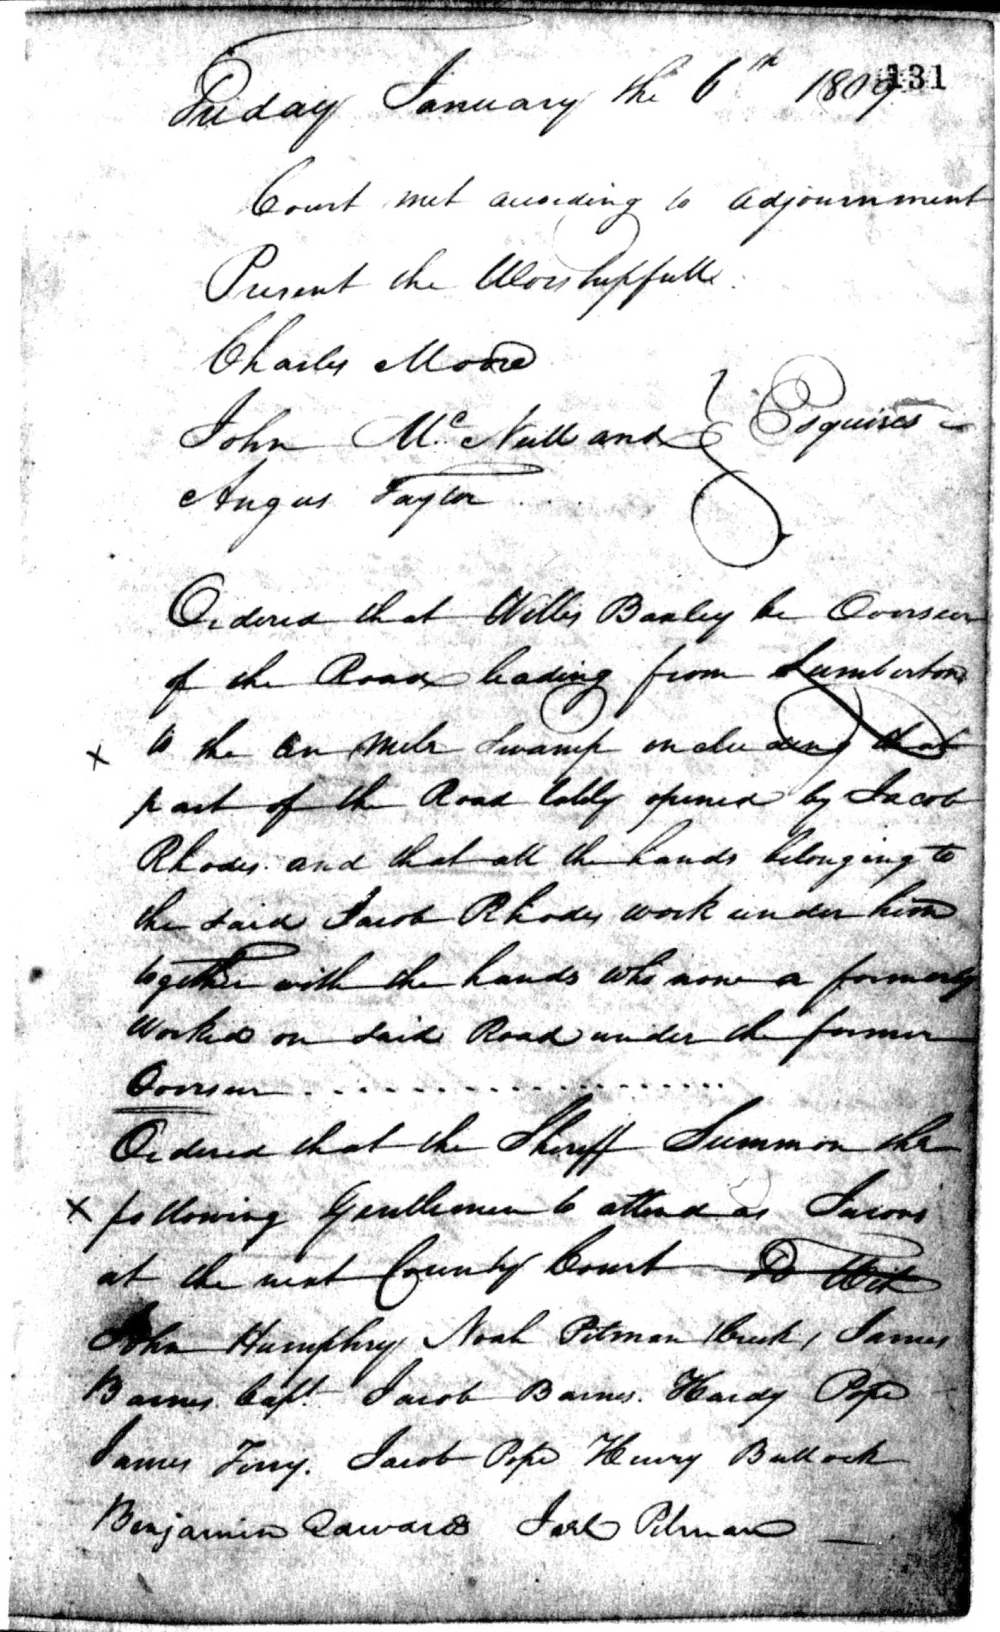 131
Friday January the 6th 1809
Court met according to adjournment
Present the Worshipfull
Charles Moore
John Mc Neill and } Esquires
Angus Taylor
Ordered that Willis Barley be Overseer
of the Road leading from Lumberton
x to the ten Mile Swamp including that
part of the Road lately opened by Jacob
Rhodes and that all the hands belonging to
the said Jacob Rhodes work under him
together with the hands who now or formerly
Worked on said Road under the former
Overseer
Ordered that the Sheriff Summon the
x following Gentlemen to attend as Jurors
at the next County Court To Wit
John Humphry Noah Pitman (Creek) James
Barnes Capt. Jacob Barnes. Hardy Pope
James Jacob Pope Henry Bullock
Benjamin Edwards Joel Pitman